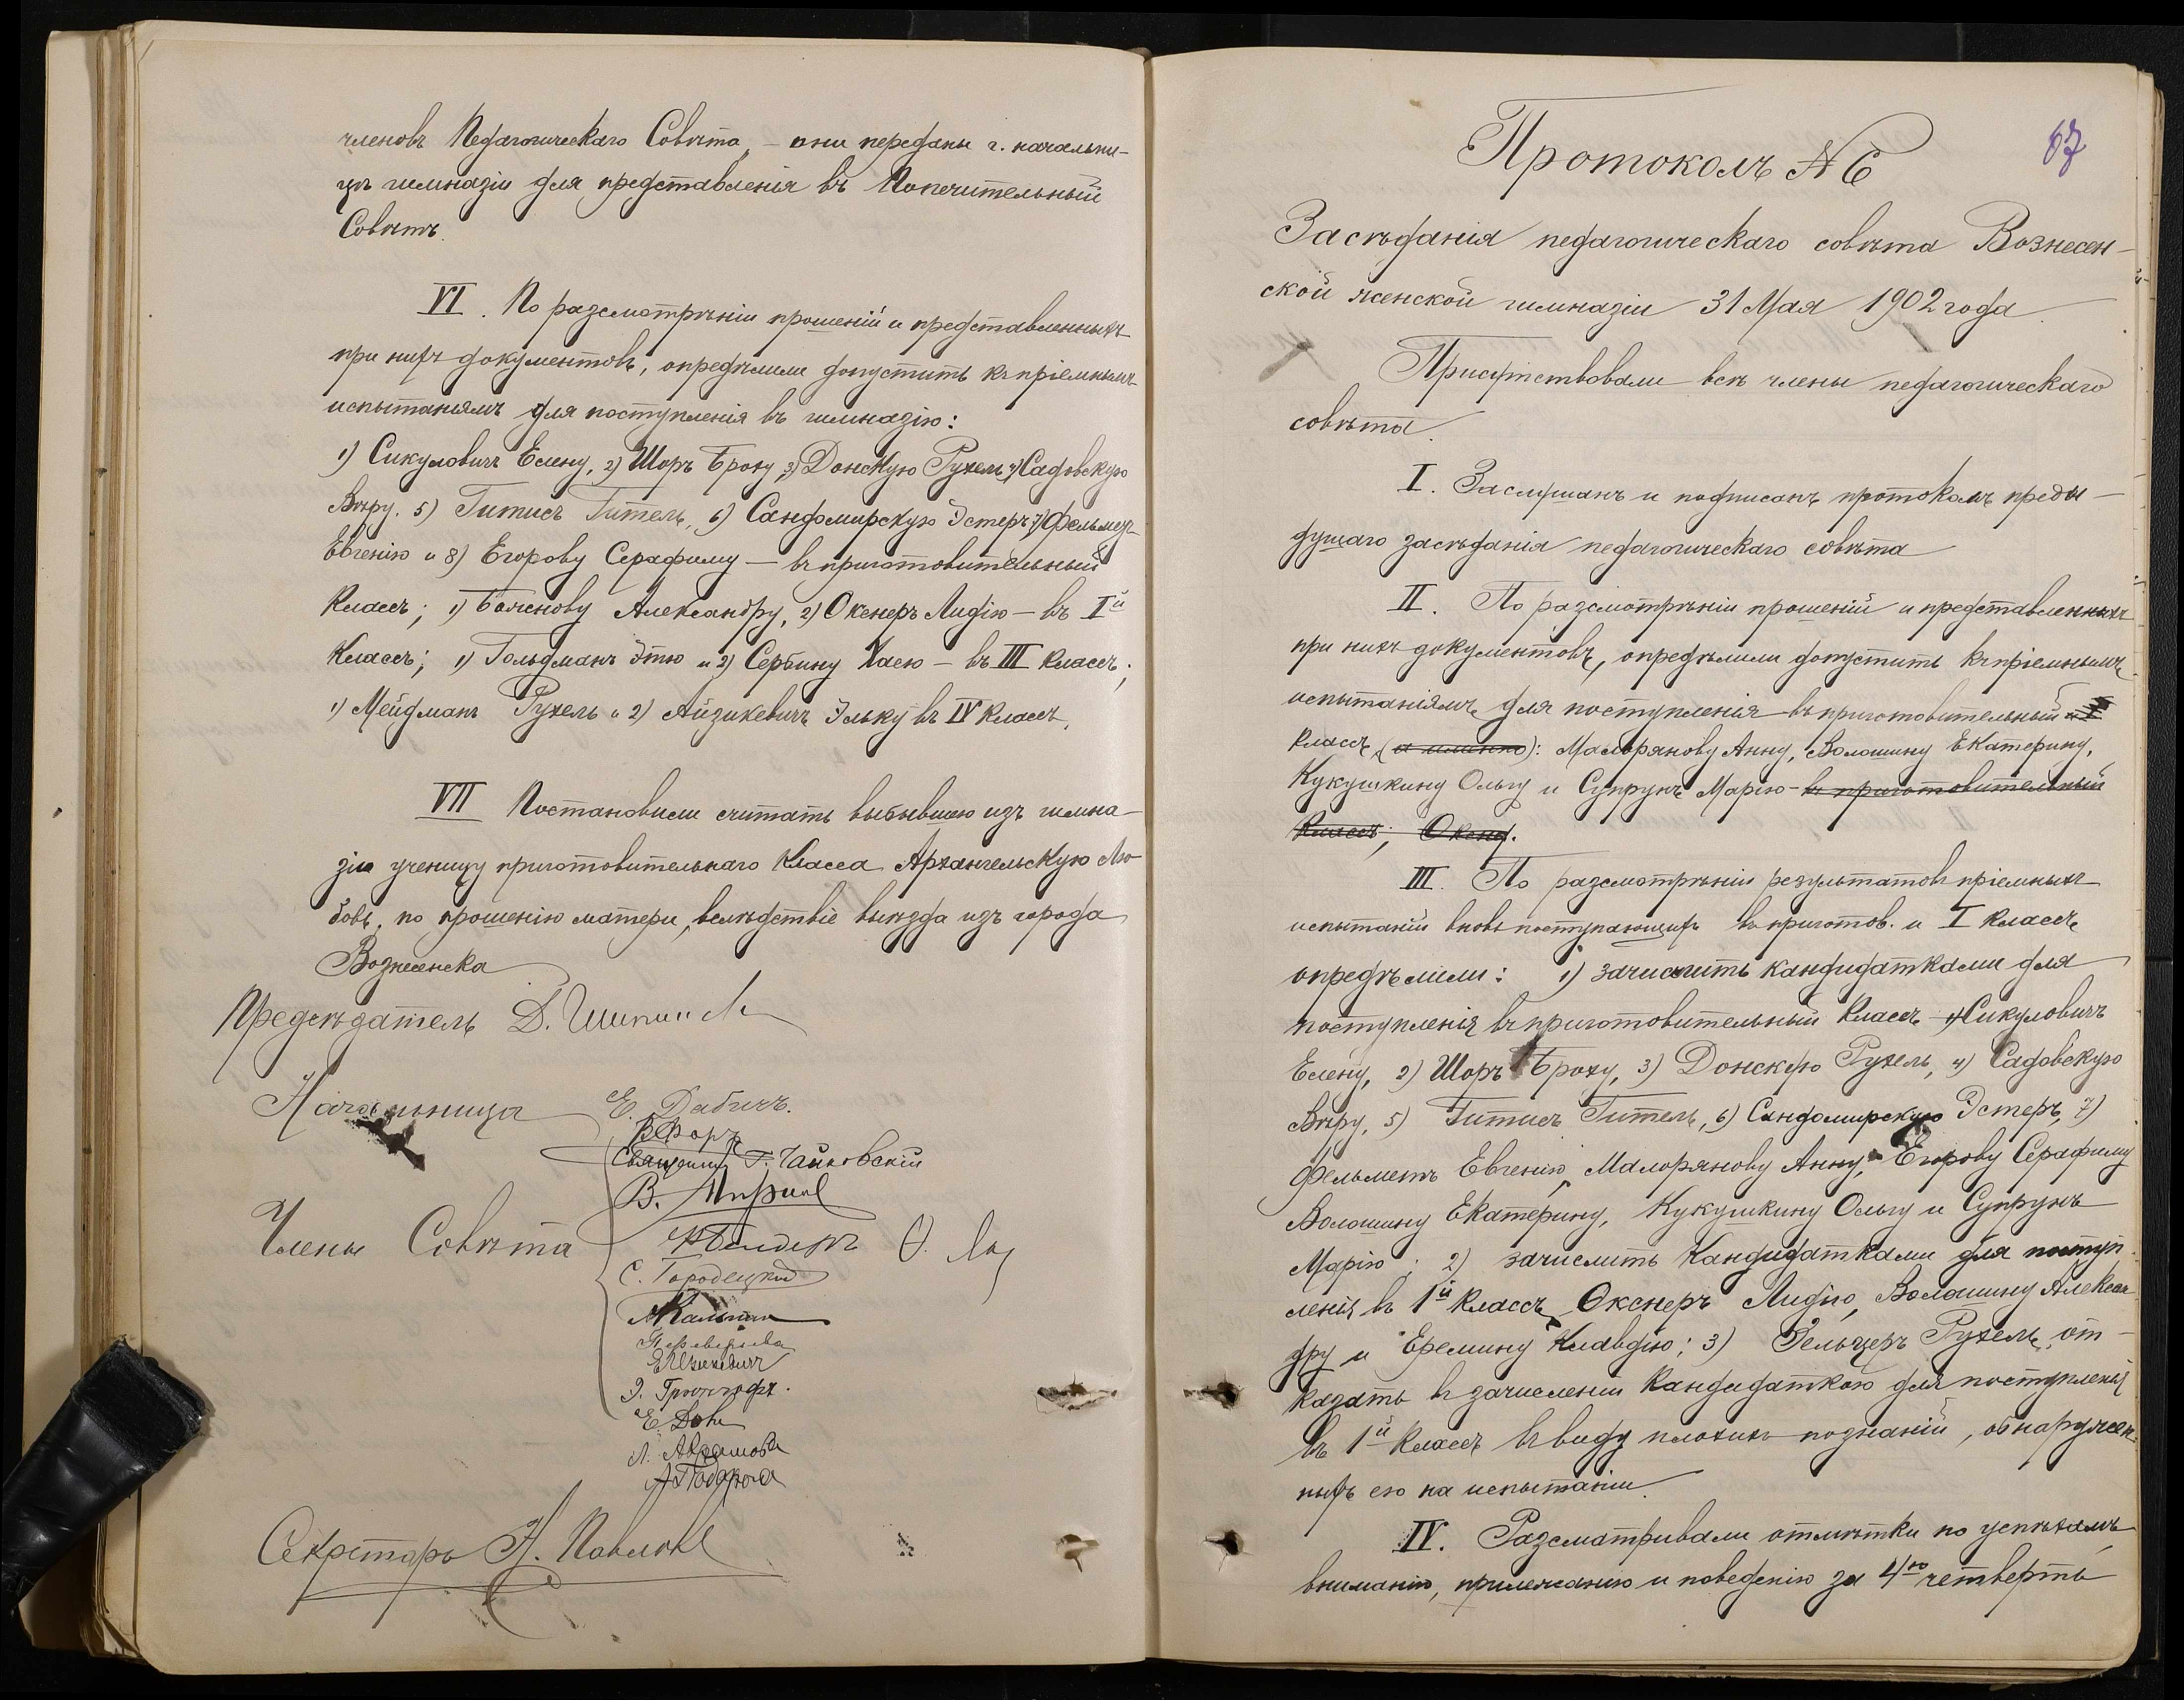 членовъ Педагогическаго Совѣта, – они переданы г. начальни-
цѣ гимназіи для представленія въ Попечительный
Совѣтъ.
VI. По разсмотрѣніи прошеній и представленныхъ
при нихъ документовъ, опредѣлили допустить къ пріемнымъ
испытаніямъ для поступленія въ гимназію:
1) Сикуловичъ Елену, 2) Шоръ Броху, 3) Донскую Рухель, 4) Садовскую
Вѣру. 5) Гитисъ Гитель, 6) Сандомирскую Эстеръ, 7) Фельметъ
Евгенію и 8) Егорову Серафиму – въ приготовительный
классъ; 1) Александру, 2) Окснеръ Лидію – въ Iй
классъ; 1) Гольдманъ Этю и 2) Сербину Хаею – въ III классъ;
1) Мейдманъ Рухель и 2) Айзикевичъ Эльку въ IV классъ.
VII Постановили считать выбывшею изъ гимна-
зіи ученицу приготовительнаго класса Архангельскую Лю-
бовь, по прошенію матери, вслѣдствіе выѣзда изъ города
Вознесенска
Предсѣдатель Д.
Начальница Е. Дабичъ.
Священникъ Г. Чайковскій
В.
Члены Совѣта
С. Городецкій
Е. Айзикевичъ
Э.
Е.
Л. Абрамова
А.
Секретарь Н. Павловъ
67
Протоколъ № 6
Засѣданія педагогическаго совѣта Вознесен-
ской женской гимназіи 31 Мая 1902 года
Присутствовали всѣ члены педагогическаго
совѣта.
I. Заслушанъ и подписанъ протоколъ преды-
дущаго засѣданія педагогическаго совѣта
II. По разсмотрѣніи прошеній и представленныхъ
при нихъ документовъ, опредѣлили допустить къ пріемнымъ
испытаніямъ для поступленія въ приготовительный и I
классъ (а именно): Малорянову Анну, Волошину Екатерину,
Кукушкину Ольгу и Супрунъ Марію – въ приготовительный
классъ; Оксне.
III. По разсмотрѣніи результатовъ пріемныхъ
испытаній вновь поступающихъ въ приготов. и I классъ
опредѣлили: 1) зачислить кандидатками для
поступленія въ приготовительный классъ – 1) Сикуловичъ
Елену, 2) Шоръ Броху, 3) Донскую Рухель, 4) Садовскую
Вѣру, 5) Гитисъ Гитель, 6) Сандомирскую Эстеръ, 7)
Фельметъ Евгенію, Малорянову Анну, Егорову Серафиму
Волошину Екатерину, Кукушкину Ольгу и Супрунъ
Марію; 2) зачислить кандидатками для поступ
ленія въ 1й классъ Окснеръ Лидію, Волошину Алексан
дру и Еремину Клавдію; 3) Гельцеръ Рухель, от-
казать въ зачисленіи кандидаткою для поступленія
въ 1й классъ въ виду плохихъ познаній, обнаружен-
ныхъ ею на испытаніи.
IV. Разсматривали отмѣтки по успѣхамъ,
вниманію, прилежанію и поведенію за 4ю четверть